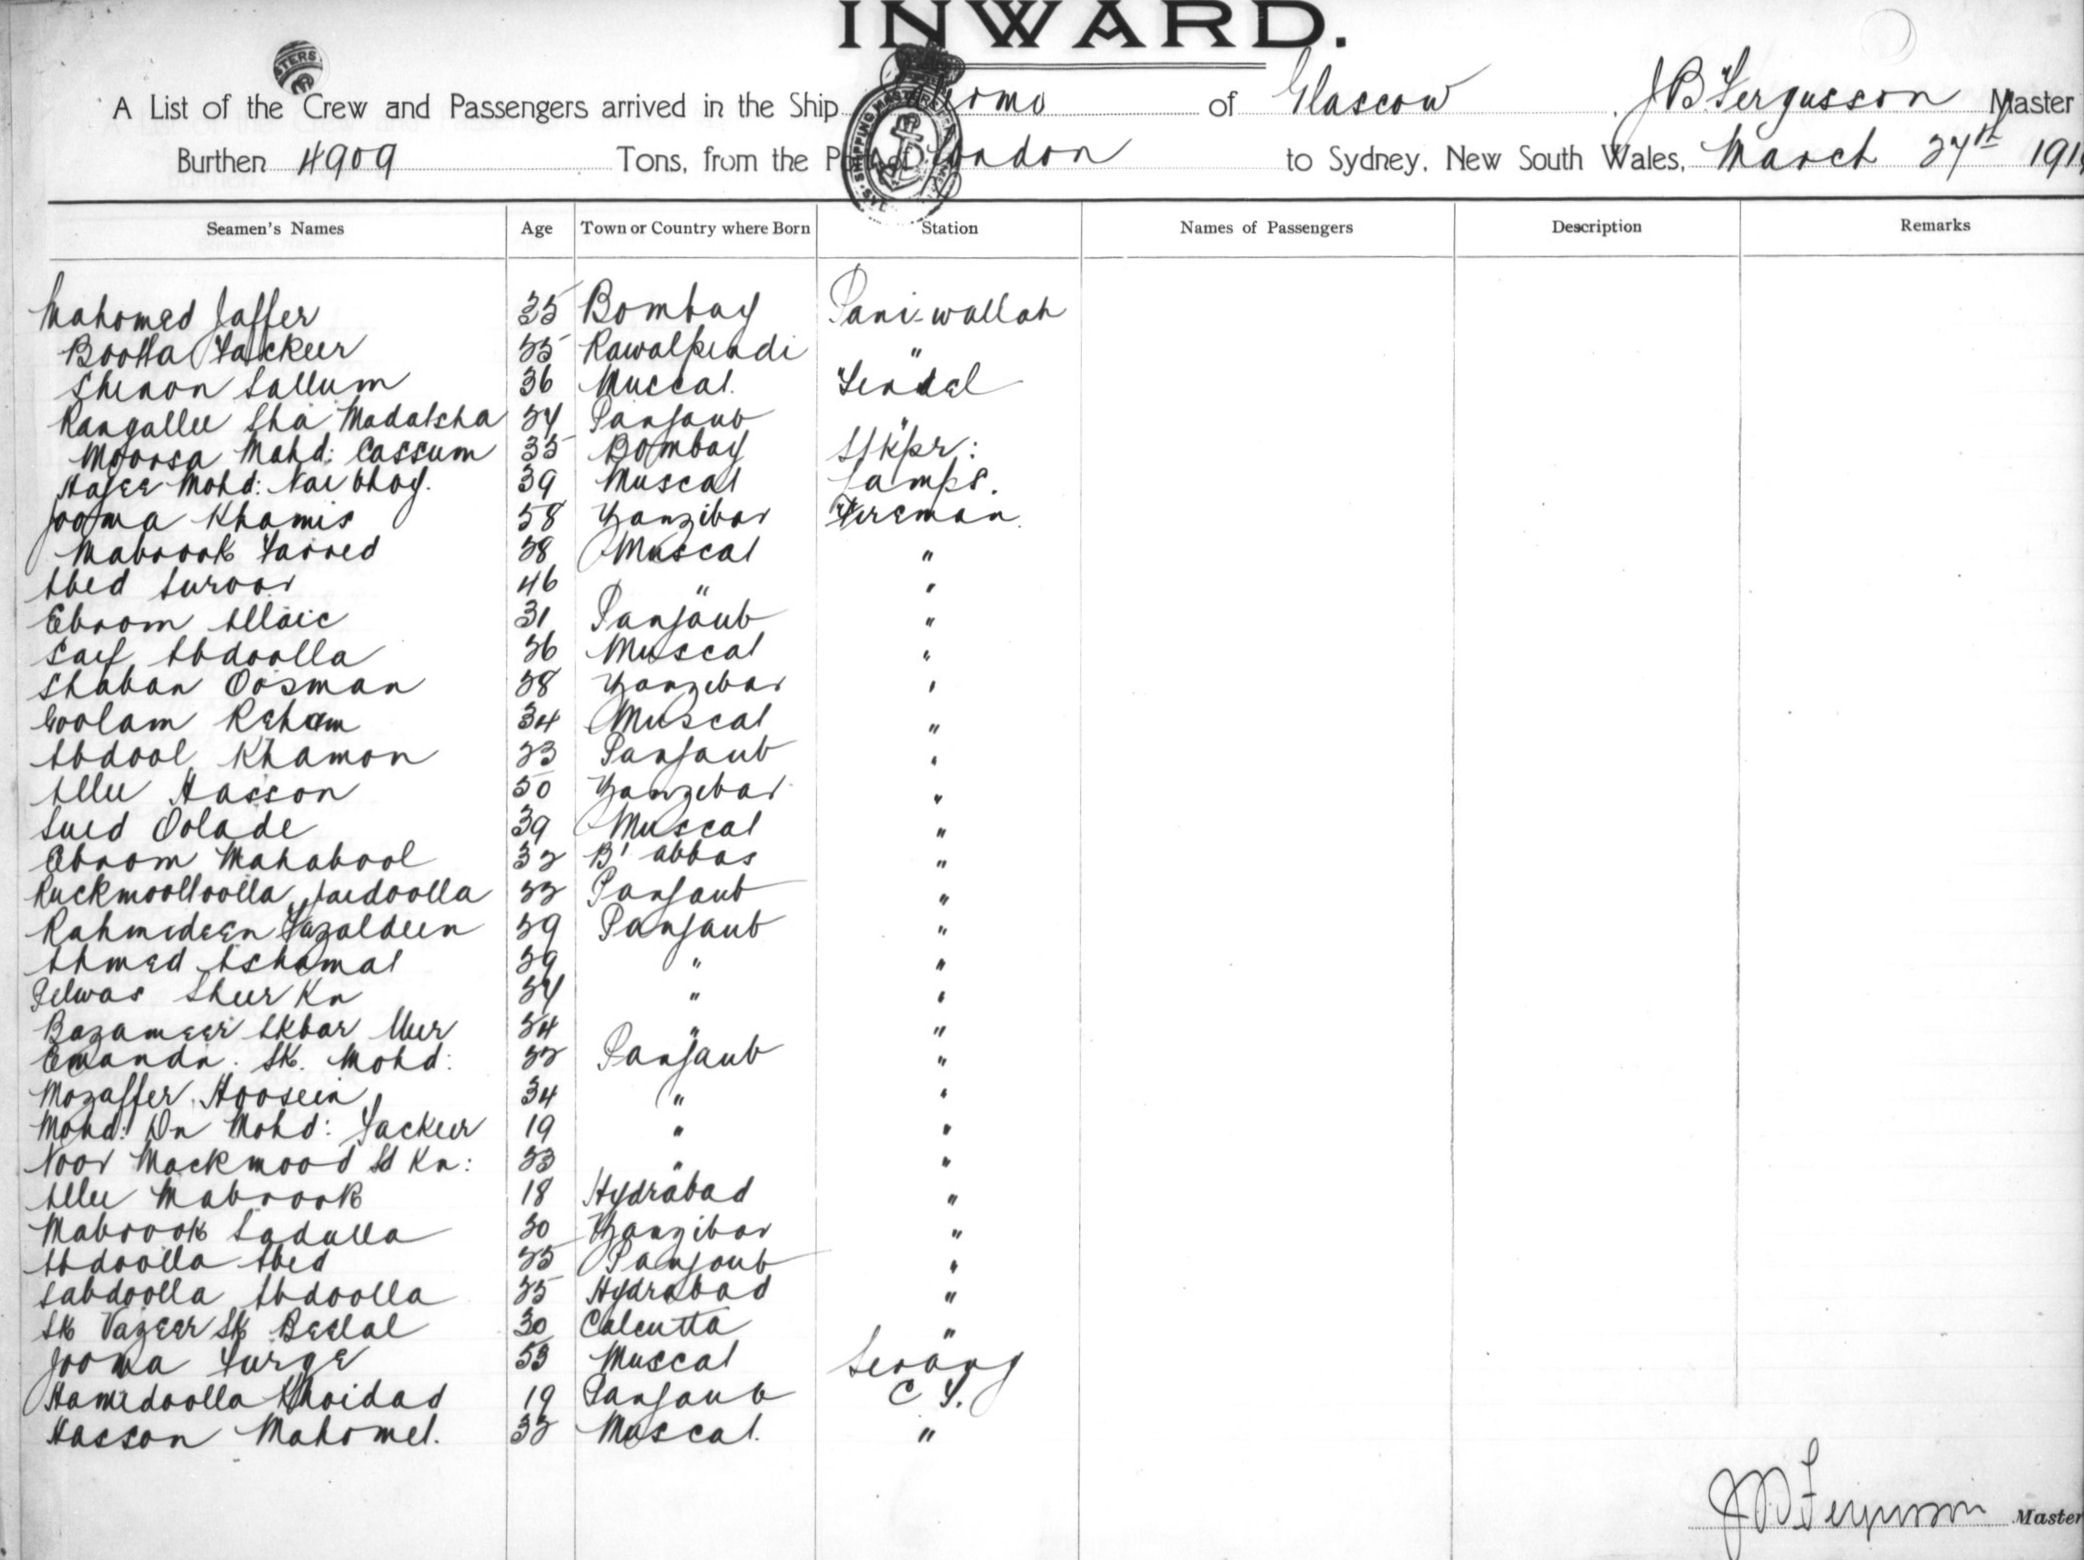 INWARD.
A List of the Crew and Passengers arrived in the Ship of Glascow, J B Fergusson Master
Burthen 4909 Tons, from the Port of London to Sydney, New South Wales, March 27th 191
Seamen's Names Age Town or Country where Born Station Names of Passengers Description Remarks
Mahomed Jaffer 35 Bombay Pani-wallah
Bootta Fackeer 25 Rawalpindi "
Sallum 36 Muscat. Tendel
Rangallee Sha Madatsha 24 Panjaub "
Moossa Mahd: Cassum 35 Bombay Stkpr:
Hajee Mohd: 39 Muscat Lamps.
Jooma Khamis 58 Zanzibar Fireman
Mabrook Farred 28 Muscat "
Abed Suroor 46 " "
Ebrom 31 Panjaub "
Saif Abdoolla 36 Muscat "
Shaban Oosman 28 Zanzibar "
Goolam Reham 34 Muscat "
Abdool Khamon 23 Panjaub "
Allee Hasson 50 Zanzebar "
Sued Oolade 39 Muscat "
Ebrom Mahabool 32 B' abbas "
Jaidoolla 32 Panjaub "
Rahmedeen Fazaldeen 29 Panjaub "
Ahmed 29 " "
Pelwas Sheer Kn 24 " "
Bazameer Akbar Meer 24 " "
Sk. Mohd: 22 Panjaub "
Mozaffer Hoosein 34 " "
Mohd: Dn Mohd: Fackeer 19 " "
Noor Mackmood Sd Kn: 23 " "
Allee Mabrook 18 Hydrabad "
Mabrook Sadulla 30 Zanzibar "
Abdoolla Abed 25 Panjoub "
Sabdoolla Abdoolla 25 Hydrabad "
Sk Vazeer Sk Beelal 30 Calcutta "
Jooma Furge 53 Muscat Serang
Hamedoolla Khoidad 19 Panjaub C F.
Hasson Mahomet. 32 Muscat. "
J B Fergusson Master